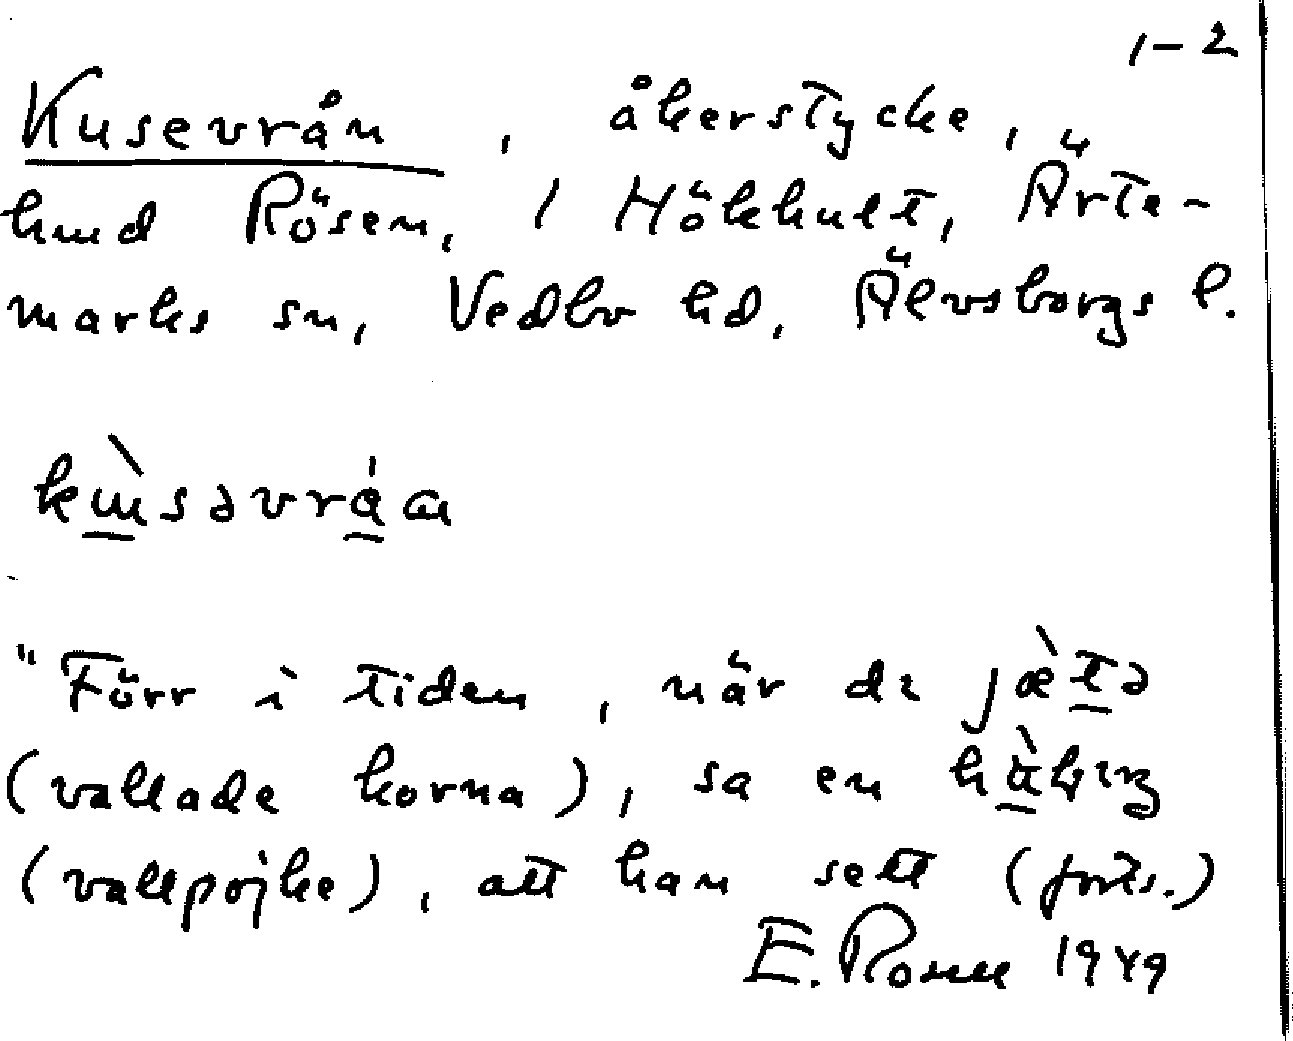 1-2
Kusevrån, åkerstycke,
hmd Rösen, i Hökhult, Ärte-
marks sn, Vedbo hd, Älvsborgs l.
"Förr i tiden, när di jæ̀tə
(vallade korna), sa en
(vallpojke), att han sett (forts.)
E. Rosell 1949